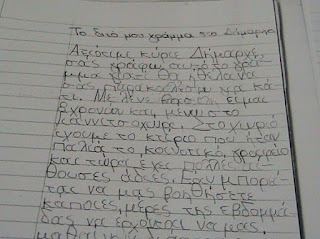 Το δικό μου γράμμα στο Δήμαρχο
Αξιότιμε κύριε Δήμαρχε,
σας γράφω αυτό το γρά-
μμα γιατί θα ήθελα να
σας παρακαλέσω για κά-
τι. Με λένε είμαι
9 χρονών και μένω στο
Στο χωριό
έχουμε το κτίριο που ήταν
παλιά το κοινοτικό γραφείο
και τώρα έχει πολλές αί-
θουσες άδειες. Εάν μπορεί-
τας να μας βοηθήσετε
κάποιες μέρες της εβδομμά-
δας να έρχονται να μας